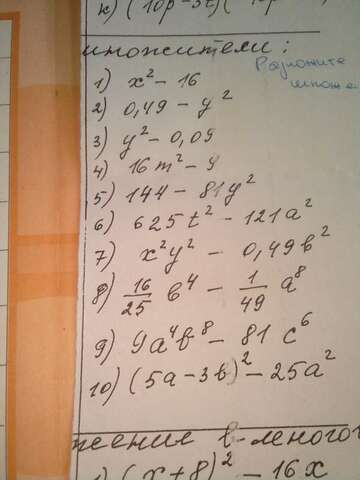 к) (10p-3t)(
множители:
Разложите
множе
1) x² - 16
2) 0,49 - y²
3) y² - 0,09
4) 16m² - 9
5) 144 - 81y²
6) 625t² - 121a²
7) x²y² - 0,49b²
8) 16/25 b⁴ - 1/49 a⁸
9) 9a⁴b⁸ - 81c⁶
10) (5a-3b)² - 25a²
жение в многоч
(x+8)² - 16x